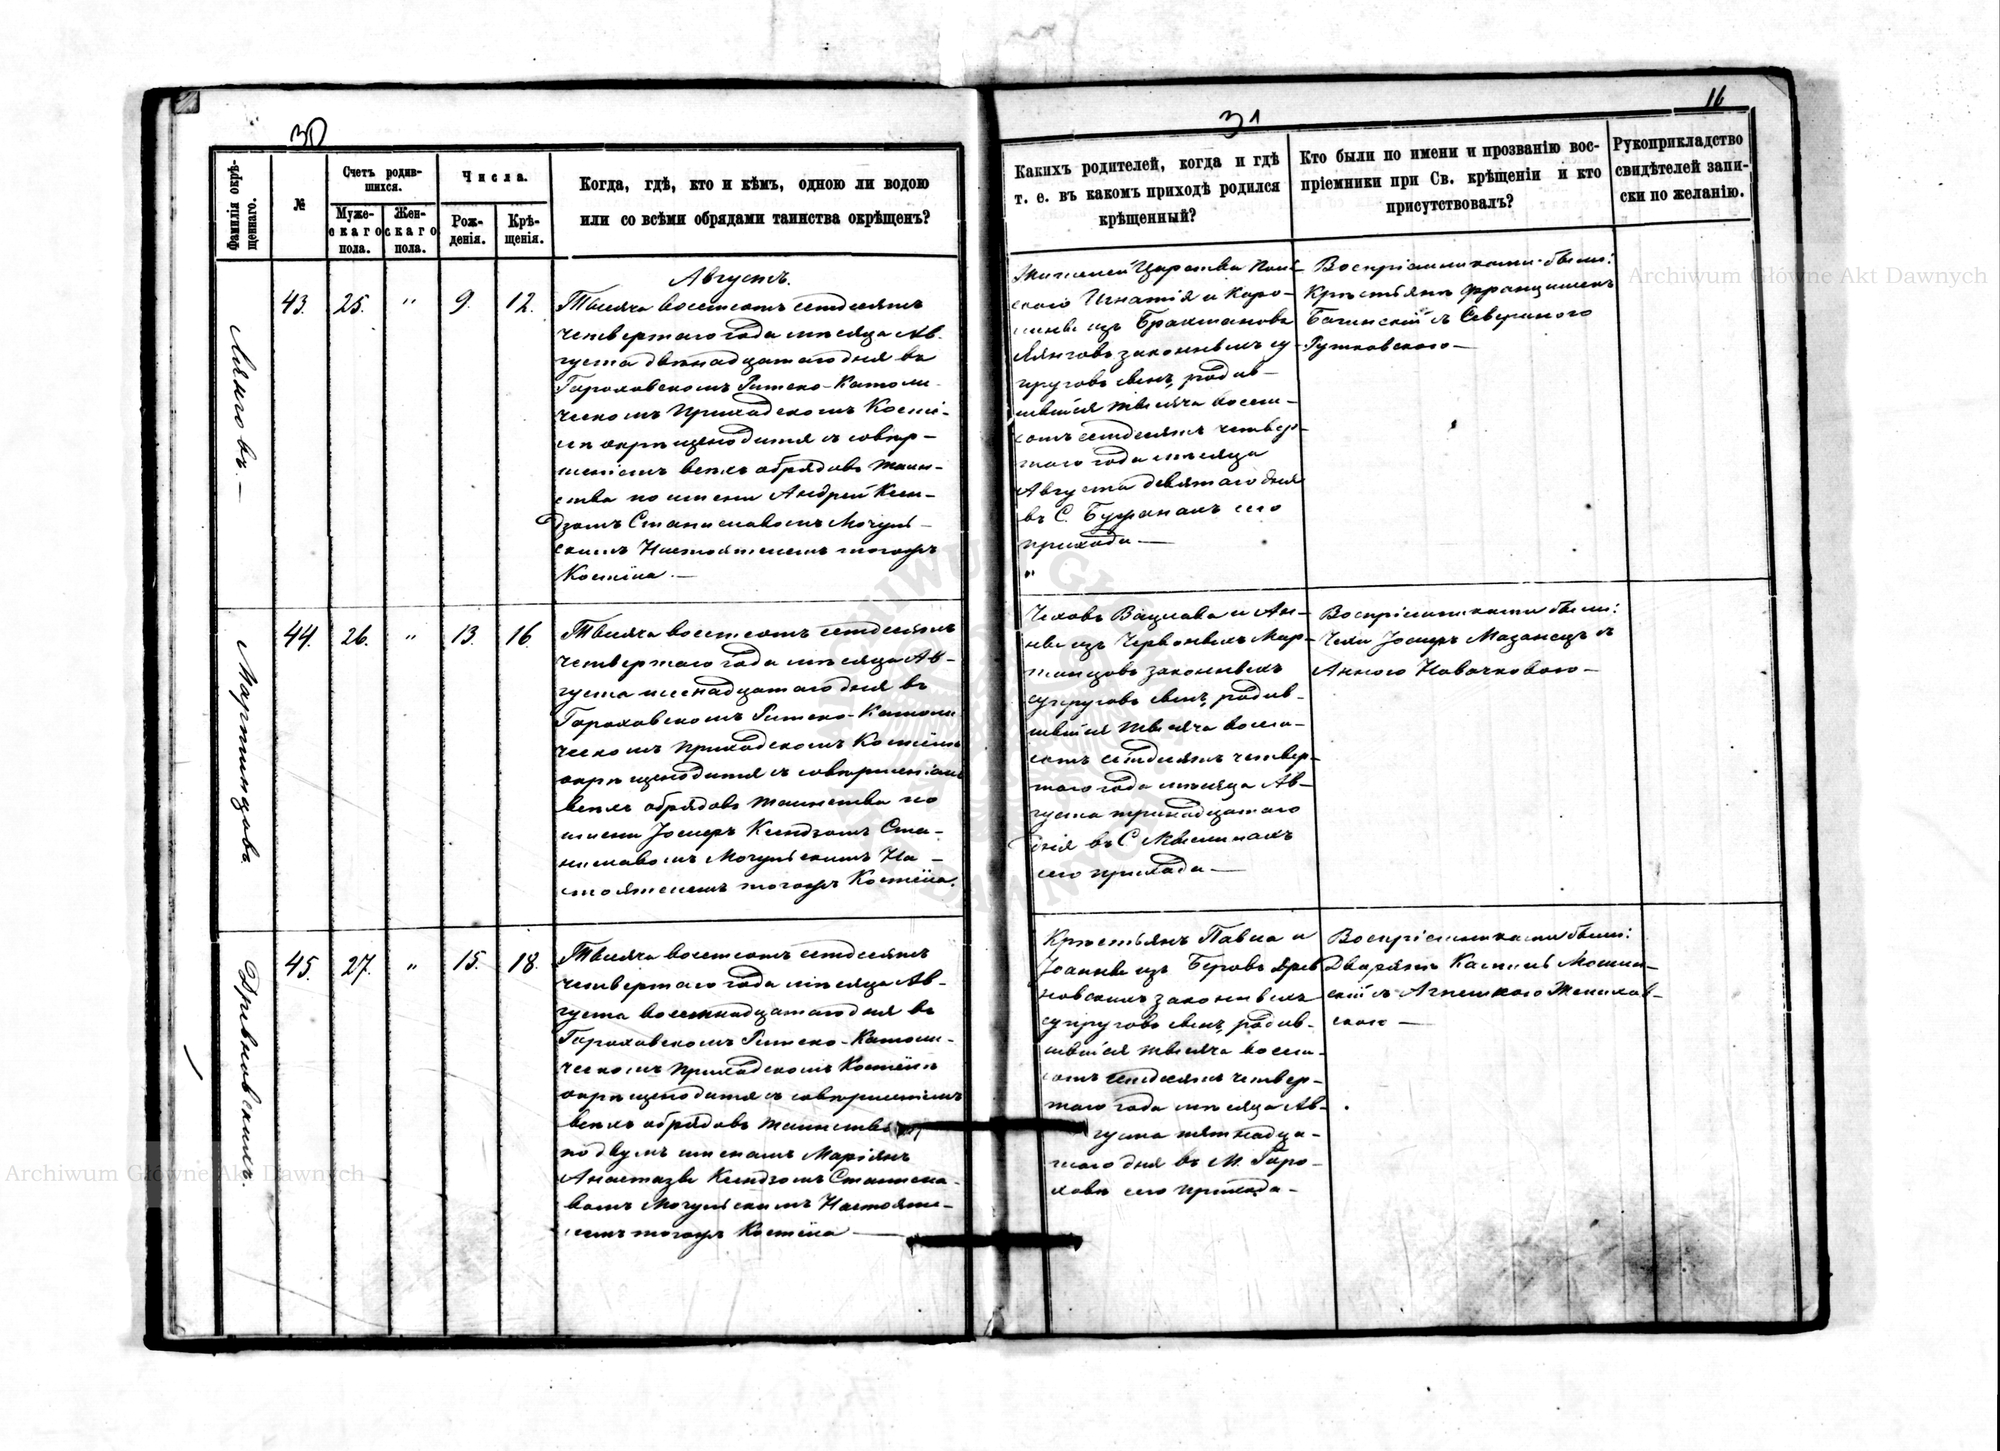 30
Фамилія окрѣ-
щеннаго.
№
Счетъ родив-
шихся.
Муже-
скаго
пола.
Жен-
скаго
пола.
Числа.
Рож-
денія.
Крѣ-
щенія.
Когда, гдѣ, кто и кѣмъ, одною ли водою
или со всѣми обрядами таинства окрѣщенъ?
Августъ.
43. 25. " 9. 12.
Тысяча восемсотъ семдесятъ
четвертаго года мѣсяца Ав-
густа двѣнадцатаго дня въ
Гороховскомъ Римско-Католи-
ческомъ Приходскомъ Костё-
лѣ окрѣщено дитя съ совер-
шеніемъ всѣхъ обрядовъ Таин-
ства по имени Андрей Ксен-
дзомъ Станиславомъ Могуль-
скимъ Настоятелемъ тогожъ
Костёла. —
44. 26. " 13. 16.
Мартинцовъ
Тысяча восемсотъ семдесятъ
четвертаго года мѣсяца Ав-
густа шеснадцатаго дня въ
Гороховскомъ Римско-Католи
ческомъ Приходскомъ Костёлѣ
окрѣщено дитя съ совершеніемъ
всѣхъ обрядовъ Таинства по
имени Јосифъ Ксендзомъ Ста-
ниславомъ Могульскимъ На-
стоятелемъ тогожъ Костёла.
45. 27. " 15. 18.
Тысяча восемсотъ семдесятъ
четвертаго года мѣсяца Ав-
густа восемнадцатаго дня въ
Гороховскомъ Римско-Католи-
ческомъ Приходскомъ Костёлѣ
окрѣщено дитя съ совершеніемъ
всѣхъ обрядовъ Таинства
по двумъ именамъ Маріянъ
Анастазы Ксендзомъ Станисла-
вомъ Могульскимъ Настояте-
лемъ тогожъ Костёла —
31
16
Какихъ родителей, когда и гдѣ
т. е. въ какомъ приходѣ родился
крѣщенный?
Кто были по имени и прозванію вос-
пріемники при Св. крѣщеніи и кто
присутствовалъ?
Рукоприкладство
свидѣтелей запи-
ски по желанію.
Жителей Царства Поль-
скаго Игнатія и Каро-
лины изъ
законныхъ су-
пруговъ сынъ, родив-
шійся тысяча восем-
сотъ семдесятъ четвер-
таго года мѣсяца
Августа девятаго дня
въ С. сего
прихода —
"
Воспріемниками были:
Крестьянъ Францишекъ
Багинскій съ Севериною
Рутковского —
Чеховъ Вацлава и Ан-
ны изъ Червоныхъ Мар-
тинцовъ законныхъ
супруговъ сынъ, родив-
шійся тысяча восем-
сотъ семдесятъ четвер-
таго года мѣсяца Ав-
густа тринадцатаго
дня въ С.
сего прихода —
Воспріемниками были:
Чехи Јосифъ Мазанецъ съ
Анною —
Крестьянъ Павла и
Јоанны изъ
новскихъ законныхъ
супруговъ сынъ, родив-
шійся тысяча восем-
сотъ семдесятъ четвер-
таго года мѣсяца Ав-
густа пятнадца-
таго дня въ М. Горо-
ховѣ сего прихода —
Воспріемниками были:
Дворянъ
скій съ Агнешкою
скою —
Archiwum Główne Akt Dawnych
Archiwum Główne Akt Dawnych